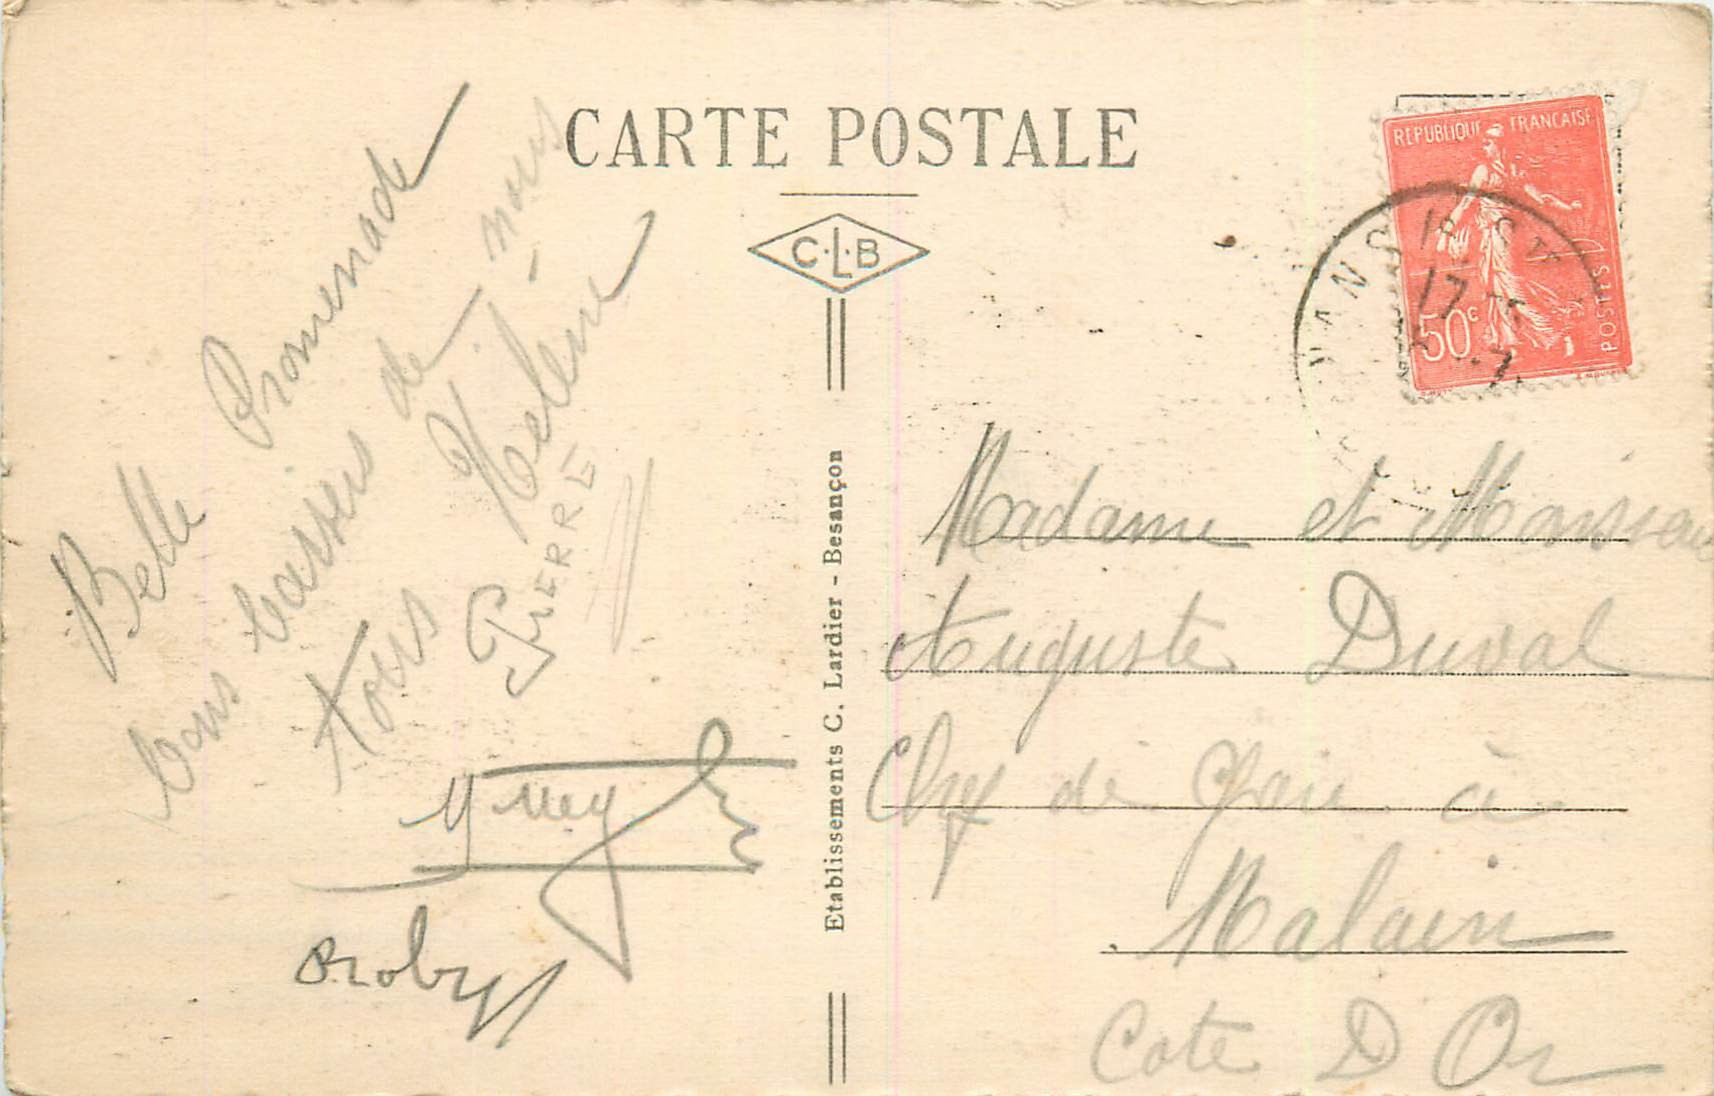 CARTE POSTALE
C.L.B
REPUBLIQUE FRANCAISE
50c
POSTES
17
Belle Promenade
bons baisers de nous
tous Hélène
PIERRE
Roby
Etablissements C. Lardier - Besançon
Madame et Monsieur
Auguste Duval
Chef de Gare à
Malain
Cote D Or